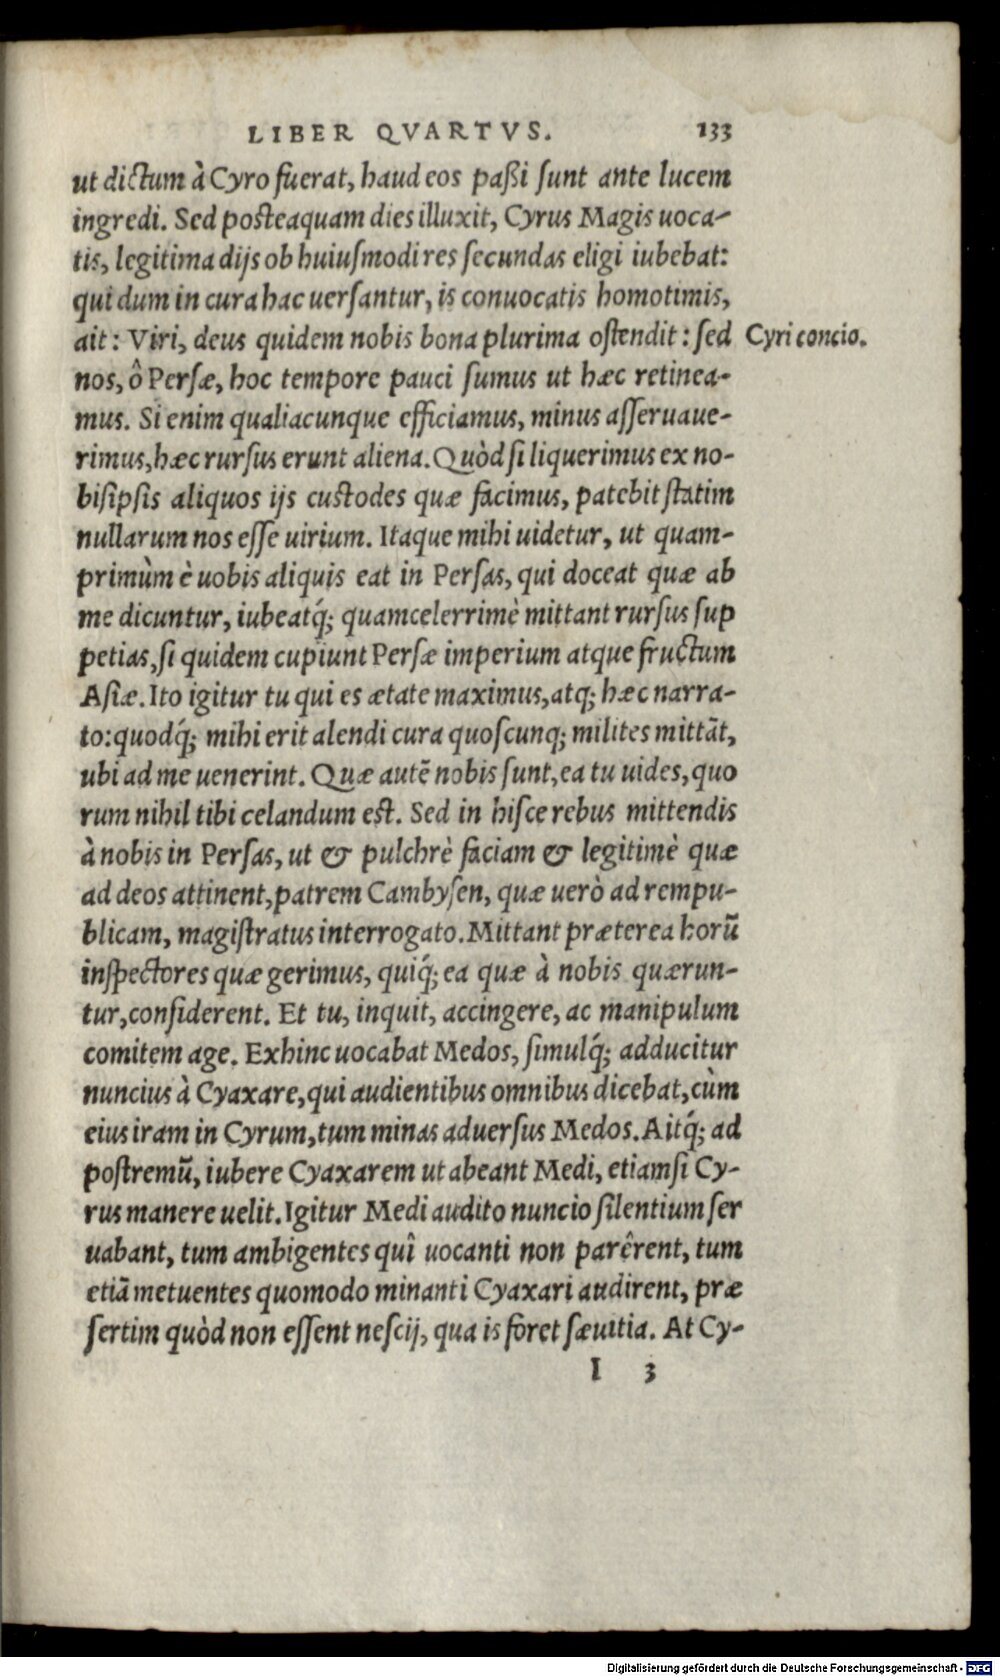 LIBER QVARTVS. 133
ut dictum à Cyro fuerat, haud eos paßi sunt ante lucem
ingredi. Sed posteaquam dies illuxit, Cyrus Magis uoca-
tis, legitima dijs ob huiusmodi res secundas eligi iubebat:
qui dum in cura hac uersantur, is conuocatis homotimis,
ait: Viri, deus quidem nobis bona plurima ostendit: sed
Cyri concio.
nos, ô Persæ, hoc tempore pauci sumus ut hæc retinea-
mus. Si enim qualiacunque efficiamus, minus asseruaue-
rimus, hæc rursus erunt aliena. Quòd si liquerimus ex no-
bisipsis aliquos ijs custodes quæ facimus, patebit statim
nullarum nos esse uirium. Itaque mihi uidetur, ut quam-
primùm è uobis aliquis eat in Persas, qui doceat quæ ab
me dicuntur, iubeatq́; quamcelerrimè mittant rursus sup
petias, si quidem cupiunt Persæ imperium atque fructum
Asiæ. Ito igitur tu qui es ætate maximus, atq; hæc narra-
to: quodq́; mihi erit alendi cura quoscunq; milites mittāt,
ubi ad me uenerint. Quæ autē nobis sunt, ea tu uides, quo
rum nihil tibi celandum est. Sed in hisce rebus mittendis
à nobis in Persas, ut & pulchrè faciam & legitimè quæ
ad deos attinent, patrem Cambysen, quæ uerò ad rempu-
blicam, magistratus interrogato. Mittant præterea horū
inspectores quæ gerimus, quiq́; ea quæ à nobis quærun-
tur, considerent. Et tu, inquit, accingere, ac manipulum
comitem age. Exhinc uocabat Medos, simulq́; adducitur
nuncius à Cyaxare, qui audientibus omnibus dicebat, cùm
eius iram in Cyrum, tum minas aduersus Medos. Aitq́; ad
postremū, iubere Cyaxarem ut abeant Medi, etiamsi Cy-
rus manere uelit. Igitur Medi audito nuncio silentium ser
uabant, tum ambigentes quî uocanti non parêrent, tum
etiā metuentes quomodo minanti Cyaxari audirent, præ
sertim quòd non essent nescij, qua is foret sæuitia. At Cy-
I 3
Digitalisierung gefördert durch die Deutsche Forschungsgemeinschaft - DFG